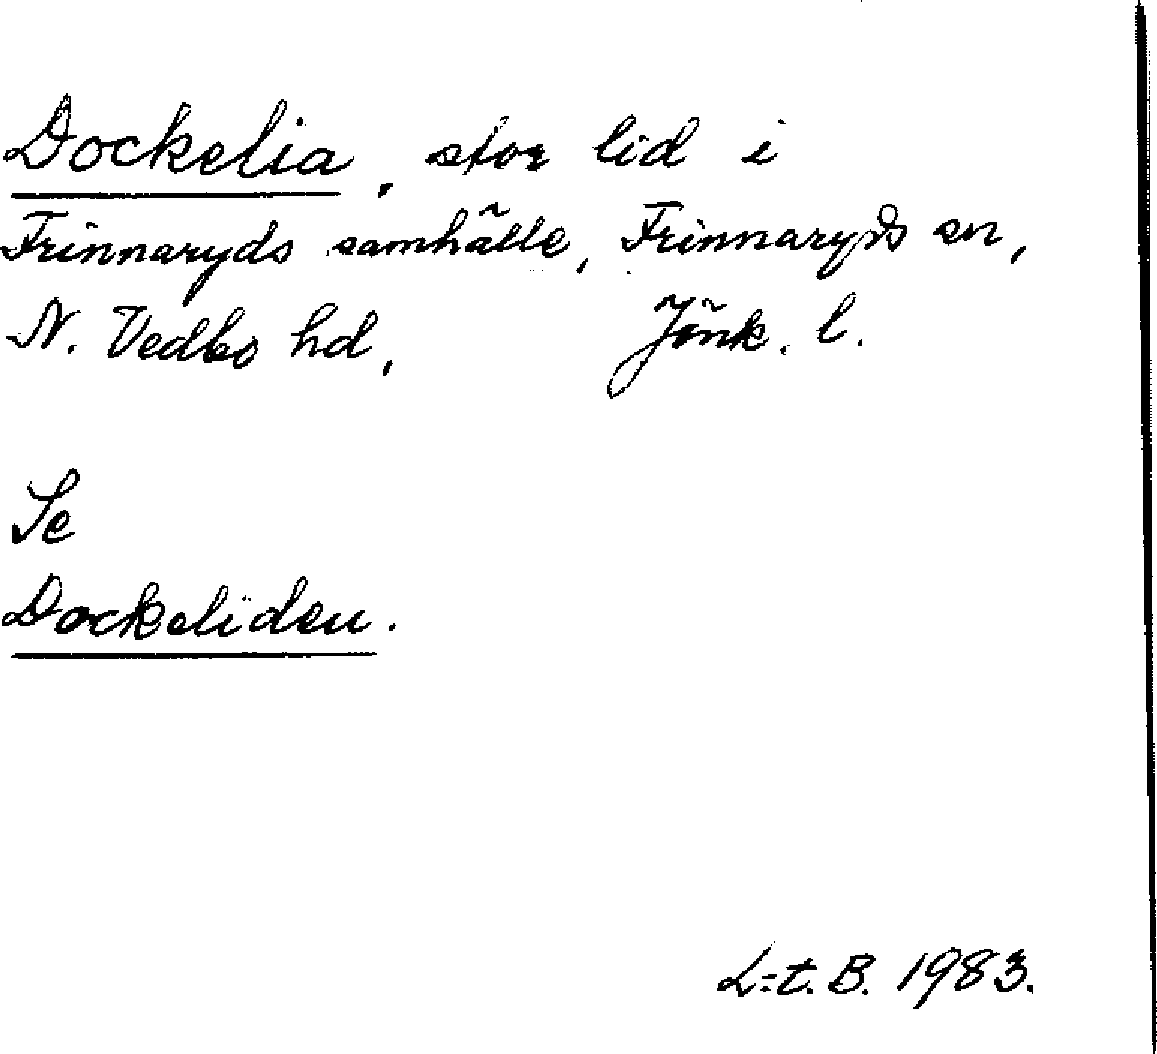 Dockelia, stor lid i
Frinnaryds samhälle, Frinnaryds sn,
N. Vedbo hd, Jönk. l.
Se
Dockeliden.
L-t. B. 1983.